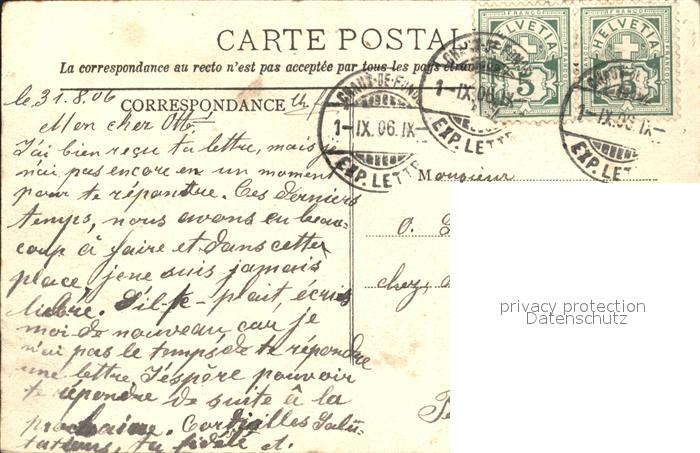 CARTE POSTALE
La correspondance au recto n'est pas acceptée par tous les pays étrangers
HELVETIA HELVETIA
FRANCO FRANCO
5 5
CHAUX-DE-FONDS
1-IX.06.IX-
EXP. LETTR
CHAUX-DE-FONDS
1-IX.06.IX-
EXP. LETTR
CHAUX-DE-FONDS
1-IX.06.IX-
EXP. LET
CORRESPONDANCE
le 31.8.06
Mon cher Otto!
J'ai bien reçu ta lettre, mais je
n'ai pas encore en un moment
pour te répondre. Ces derniers
temps, nous avons eu beau-
coup à faire et dans cette
place je ne suis jamais
libre. S'il-te-plait, écris
moi de nouveau, car je
n'ai pas le temps de te répondre
une lettre. J'éspère pouvoir
te répondre de suite à la
prochaine. Cordialles Salu-
tations, tu fidèle
Monsieur
O.
chez,
privacy protection
Datenschutz